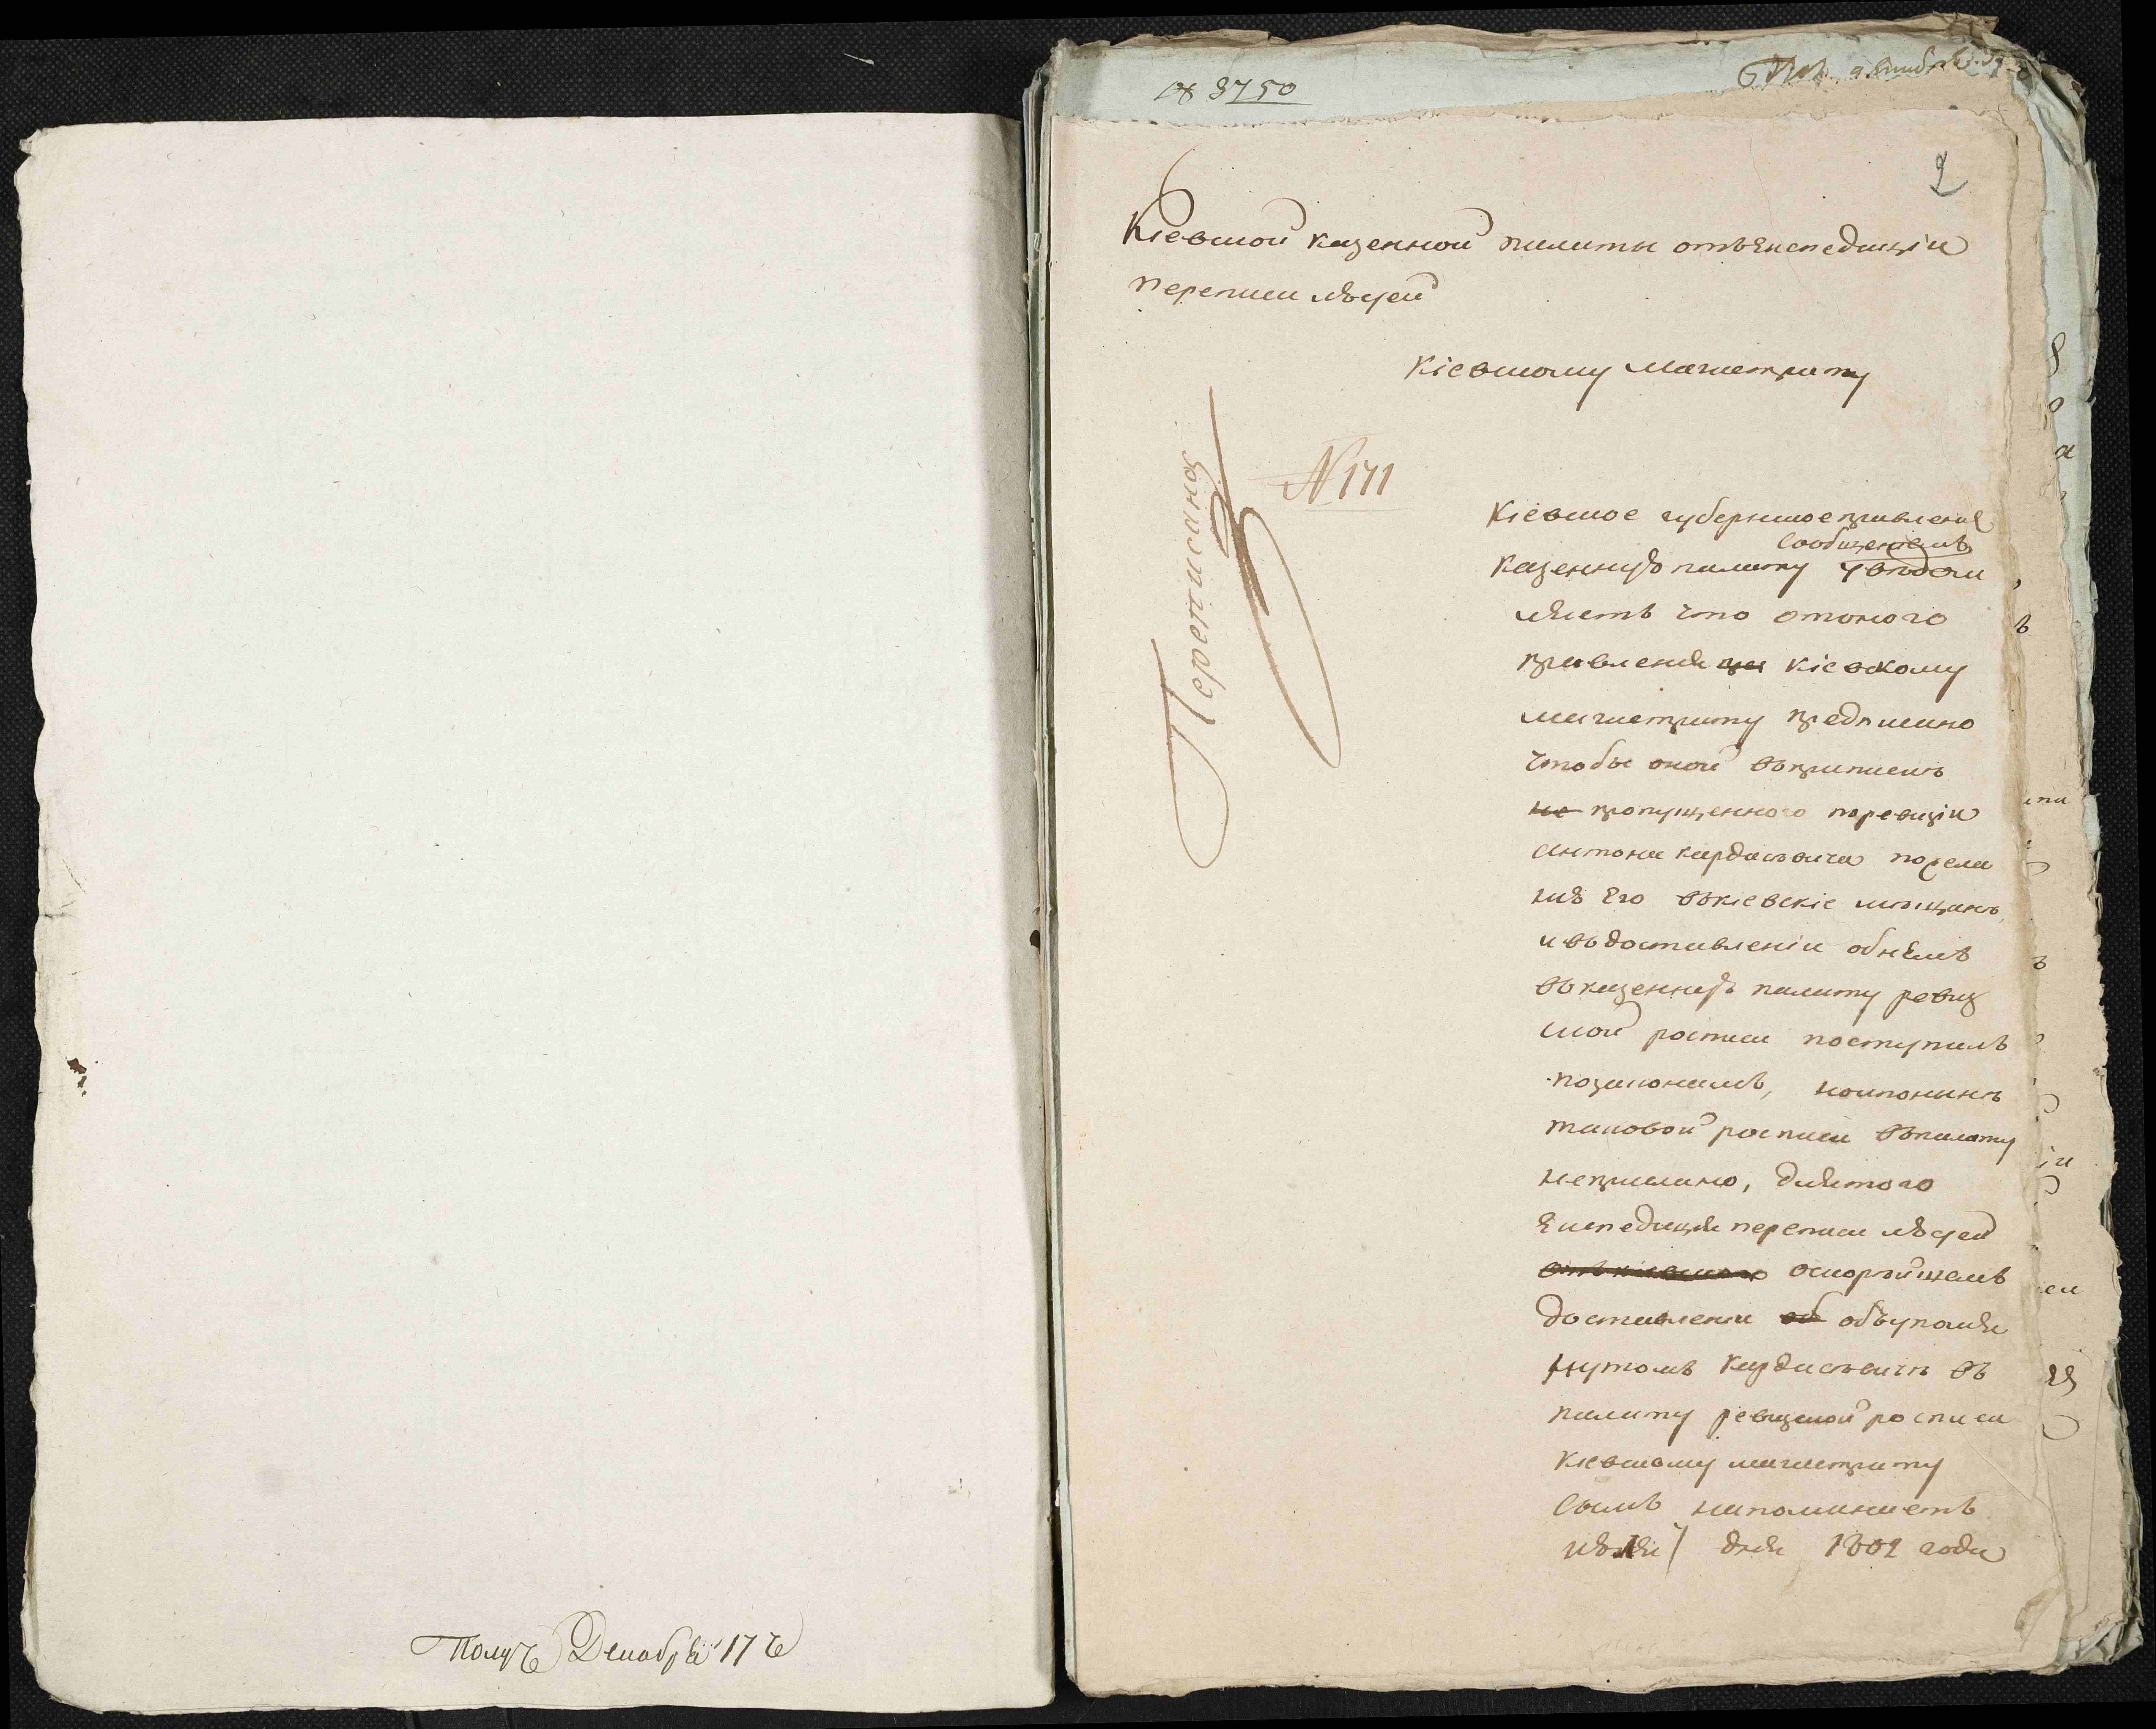 Получ Декабря 17 ч
№ 3750
2
Кiевской казенной палаты отъ Экспедицiи
переписи людей
Кiевскому магистрату
N 171
Переписано
Кiевское губернское правление
сообщениемъ
казенную палату уведом
ляетъ что отоного
правления Кiевскому
магистрату предписано
чтобы оной въприписке
не пропущенного поревизiи
Антона Кардасевича пожела
нию Его въкiевскiе мещане,
и въдоставленiи обнемъ
въказенную палату ревиз
ской росписи поступилъ
позаконамъ, нокпоныне
таковой росписи въпалату
неприслано, длятого
Экспедиция переписи людей
оскорейшемъ
доставлении об объупомя
нутомъ Кардасевиче въ
палату ревизской росписи
Киевскому магистрату
симъ напоминаетъ
июля дня 1802 года